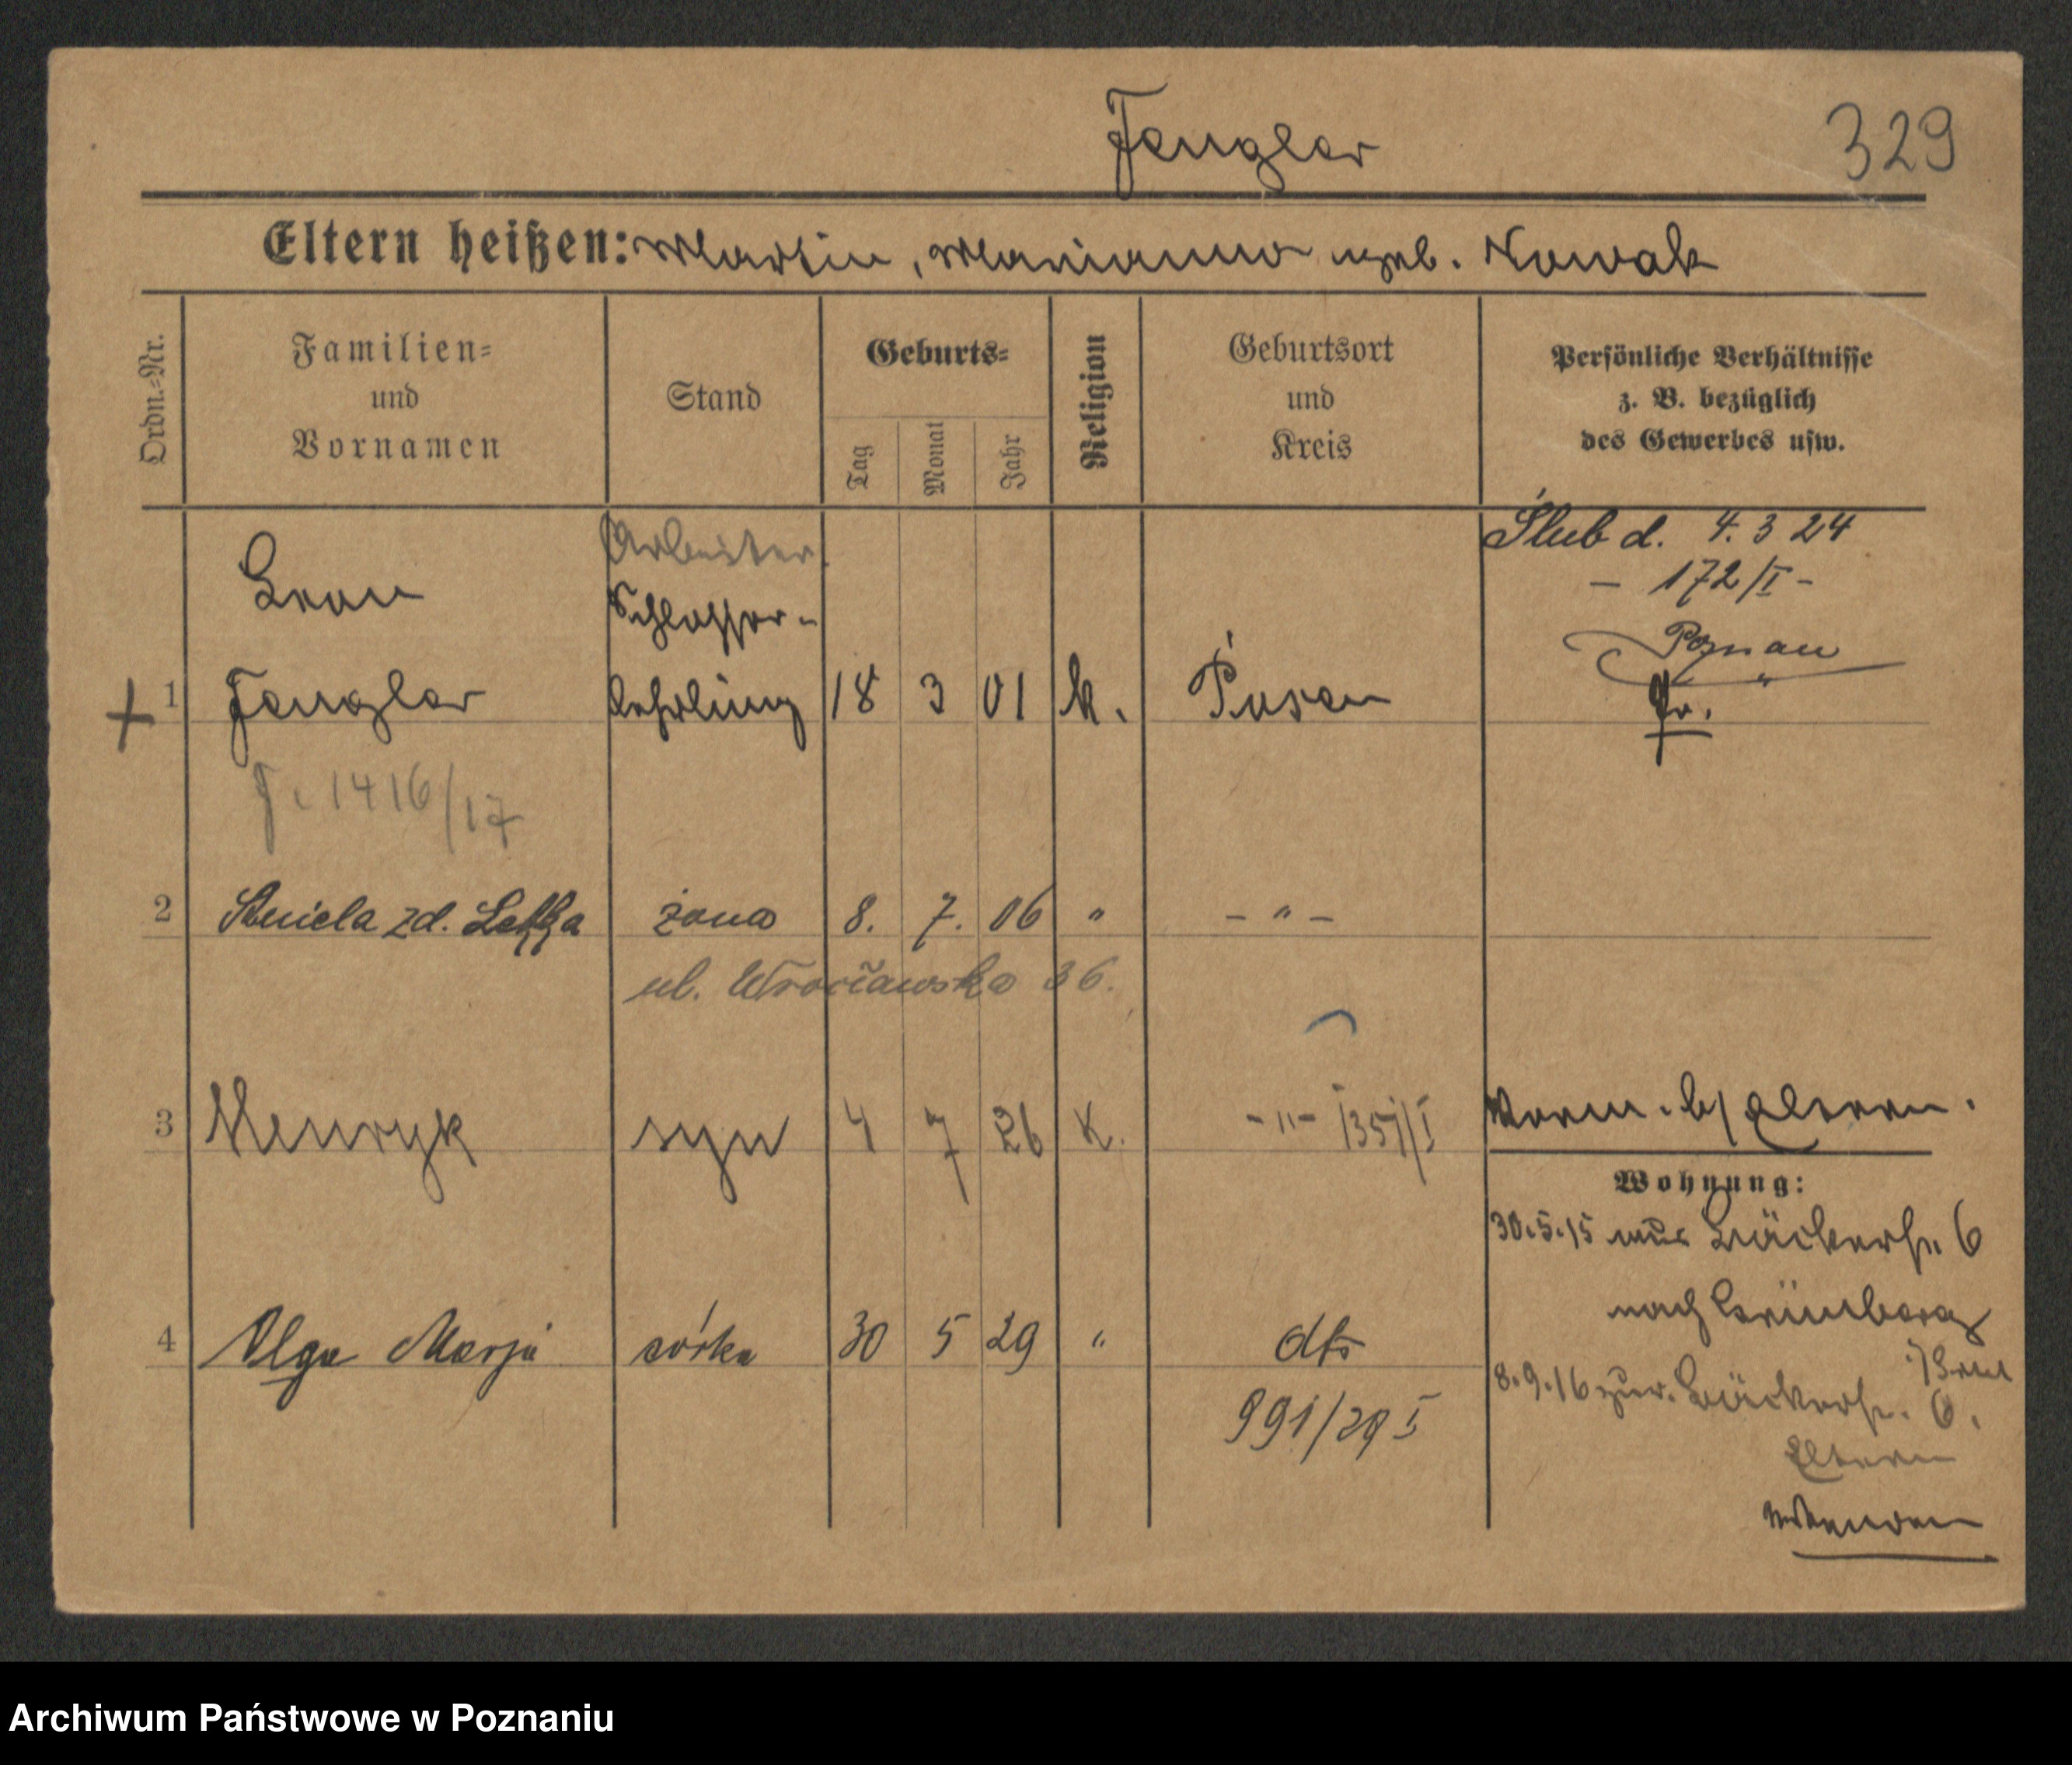 Fengler
329
Eltern heißen: Martin, Marianna geb. Nowak
Ordn.-Nr.
Familien-
und
Vornamen
Stand
Geburts-
Tag
Monat
Jahr
Religion
Geburtsort
und
Kreis
Persönliche Verhältnisse
z. B. bezüglich
des Gewerbes usw.
Ślub d. 4. 3 24
- 172/I -
Poznau
Leon
Arbeiter
Schlosser-
1 Fengler lehrling 18 3 01 k. Posen Pr.
J. 1416/17
2 Aniela zd. żona 8. 7. 06 " - " -
ul. Wrocławska 36.
3 Henryk syn 4 7 26 K. - " - 1357/I
b/ Eltern.
Wohnung:
30.5.15 aus Bäckerstr. 6
nach Grünberg
4 Olga Marja córka 30 5 29 " dto
991/29 I
8.9.16 zur. Bäckerstr. 6.
Eltern
wenden
Archiwum Państwowe w Poznaniu